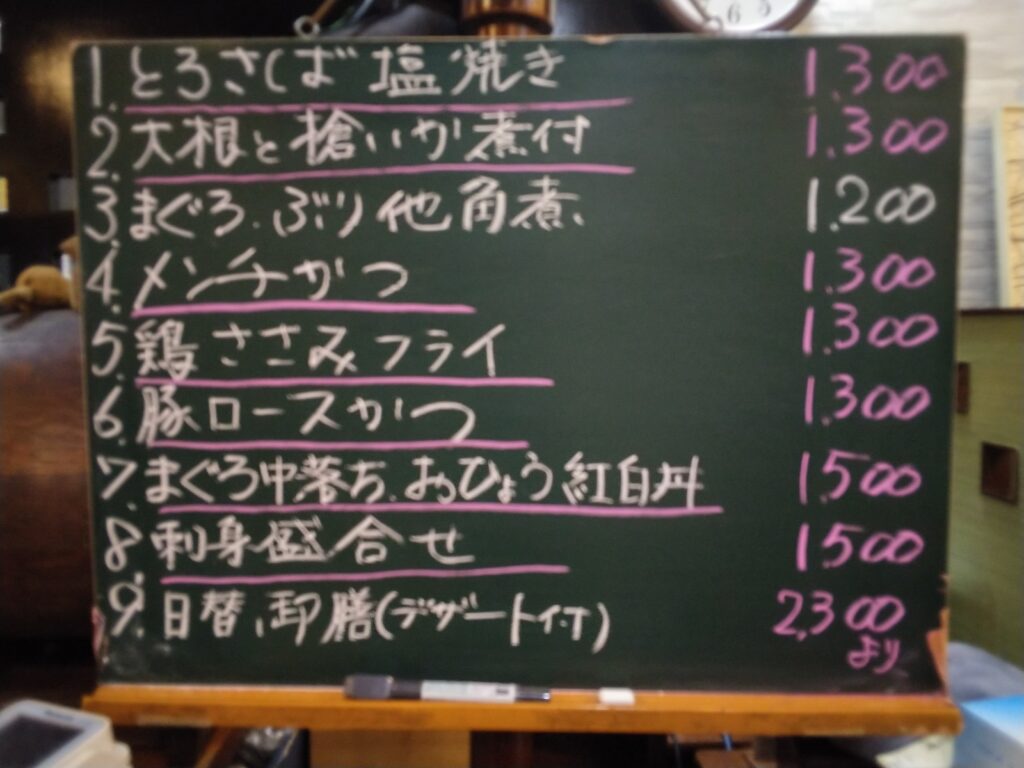 1. とろさば 塩焼き 1.300
2. 大根と槍いか煮付 1.300
3. まぐろ、ぶり他角煮 1.200
4. メンチかつ 1.300
5. 鶏ささみフライ 1.300
6. 豚ロースかつ 1.300
7. まぐろ中落ち、おひょう紅白丼 1.500
8. 刺身盛合せ 1.500
9. 日替、御膳(デザート付) 2,300
より